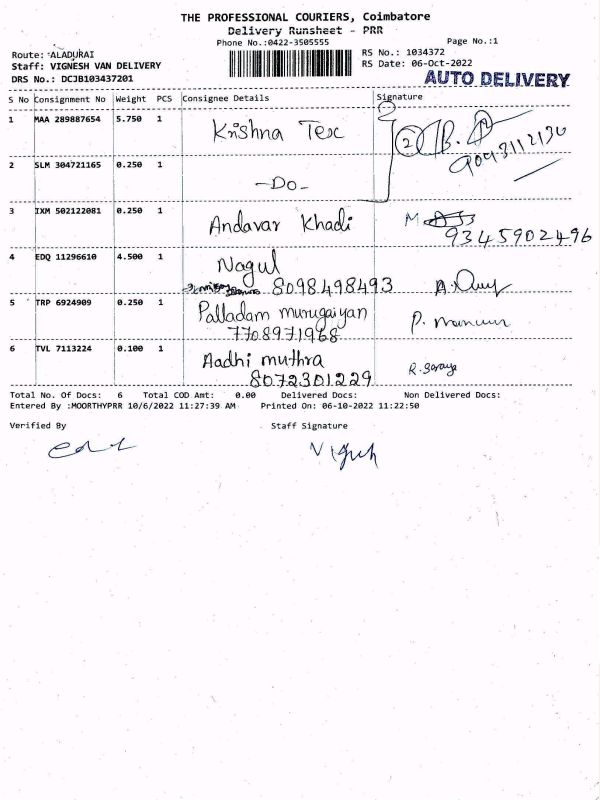 THE PROFESSIONAL COURIERS, Coimbatore
Delivery Runsheet - PRR
Phone No.:0422-3505555 Page No.:1
Route: ALADURAI RS No.: 1034372
Staff: VIGNESH VAN DELIVERY RS Date: 06-Oct-2022
DRS No.: DCJB103437201 AUTO DELIVERY
S No Consignment No Weight PCS Consignee Details Signature
1 MAA 289887654 5.750 1 Krishna Tex 2 B.
9043112130
2 SLM 304721165 0.250 1 -Do-
3 IXM 502122081 0.250 1 Andavar Khadi M
9345902496
4 EDQ 11296610 4.500 1 Nagul
8098498493 A.
5 TRP 6924909 0.250 1 Palladam murugaiyan P.
7708971968
6 TVL 7113224 0.100 1 Aadhi muthra R. Saranya
8072301229
Total No. Of Docs: 6 Total COD Amt: 0.00 Delivered Docs: Non Delivered Docs:
Entered By :MOORTHYPRR 10/6/2022 11:27:39 AM Printed On: 06-10-2022 11:22:50
Verified By Staff Signature